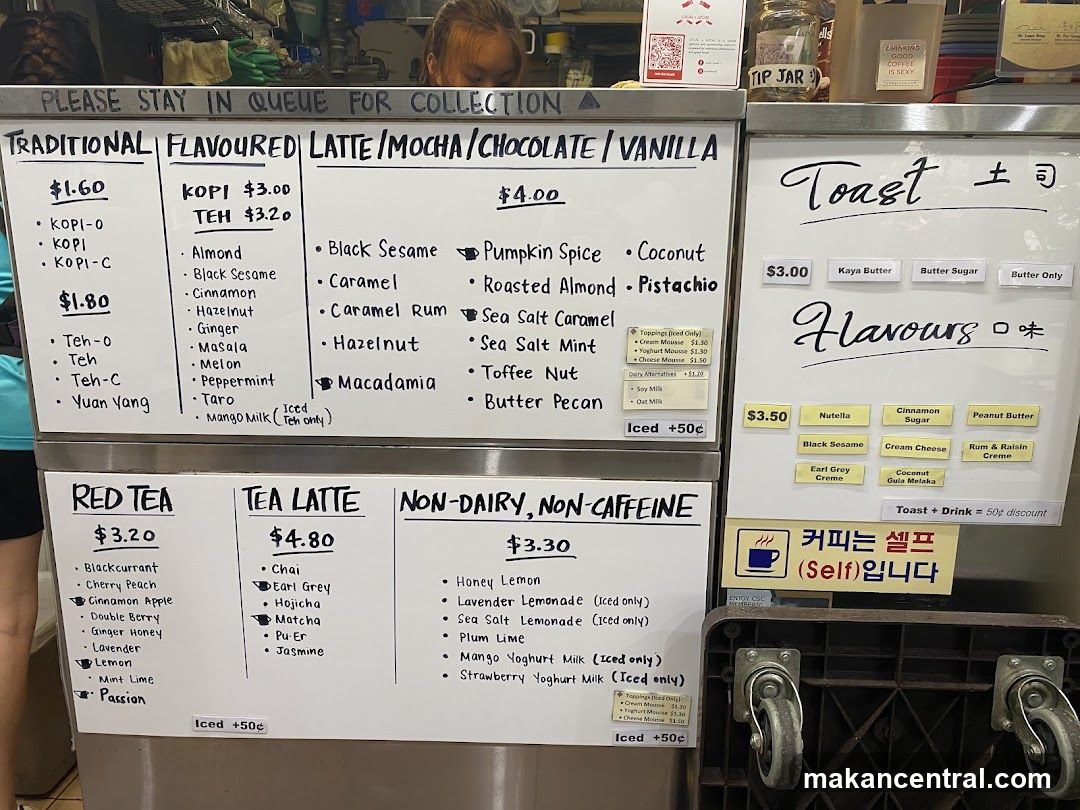 LOCAL + LOCAL
TIP JAR
DRINKING
GOOD
COFFEE
IS SEXY
PLEASE STAY IN QUEUE FOR COLLECTION
TRADITIONAL
$1.60
• KOPI-O
• KOPI
• KOPI-C
$1.80
• Teh-O
• Teh
• Teh-C
• Yuan Yang
FLAVOURED
KOPI $3.00
TEH $3.20
• Almond
• Black Sesame
• Cinnamon
• Hazelnut
• Ginger
• Masala
• Melon
• Peppermint
• Taro
• Mango Milk (Iced Teh only)
LATTE/MOCHA/CHOCOLATE/VANILLA
$4.00
• Black Sesame
• Caramel
• Caramel Rum
• Hazelnut
Macadamia
Pumpkin Spice
• Roasted Almond
Sea Salt Caramel
• Sea Salt Mint
• Toffee Nut
• Butter Pecan
• Coconut
• Pistachio
Toppings (Iced Only)
• Cream Mousse $1.30
• Yoghurt Mousse $1.30
• Cheese Mousse $1.50
Dairy Alternatives +$1.20
• Soy Milk
• Oat Milk
Iced +50¢
RED TEA
$3.20
• Blackcurrant
• Cherry Peach
Cinnamon Apple
• Double Berry
• Ginger Honey
• Lavender
Lemon
• Mint Lime
Passion
Iced +50¢
TEA LATTE
$4.80
• Chai
Earl Grey
• Hojicha
Matcha
• Pu-Er
• Jasmine
NON-DAIRY, NON-CAFFEINE
$3.30
• Honey Lemon
• Lavender Lemonade (Iced only)
• Sea Salt Lemonade (Iced only)
• Plum Lime
• Mango Yoghurt Milk (Iced only)
• Strawberry Yoghurt Milk (Iced only)
Toppings (Iced Only)
• Cream Mousse $1.30
• Yoghurt Mousse $1.30
• Cheese Mousse $1.50
Iced +50¢
Toast 土司
$3.00 Kaya Butter Butter Sugar Butter Only
Flavours 口味
$3.50 Nutella Cinnamon Sugar Peanut Butter
Black Sesame Cream Cheese Rum & Raisin Creme
Earl Grey Creme Coconut Gula Melaka
Toast + Drink = 50¢ discount
커피는 셀프
(Self)입니다
ENJOY CSC
MEMBERS'
makancentral.com